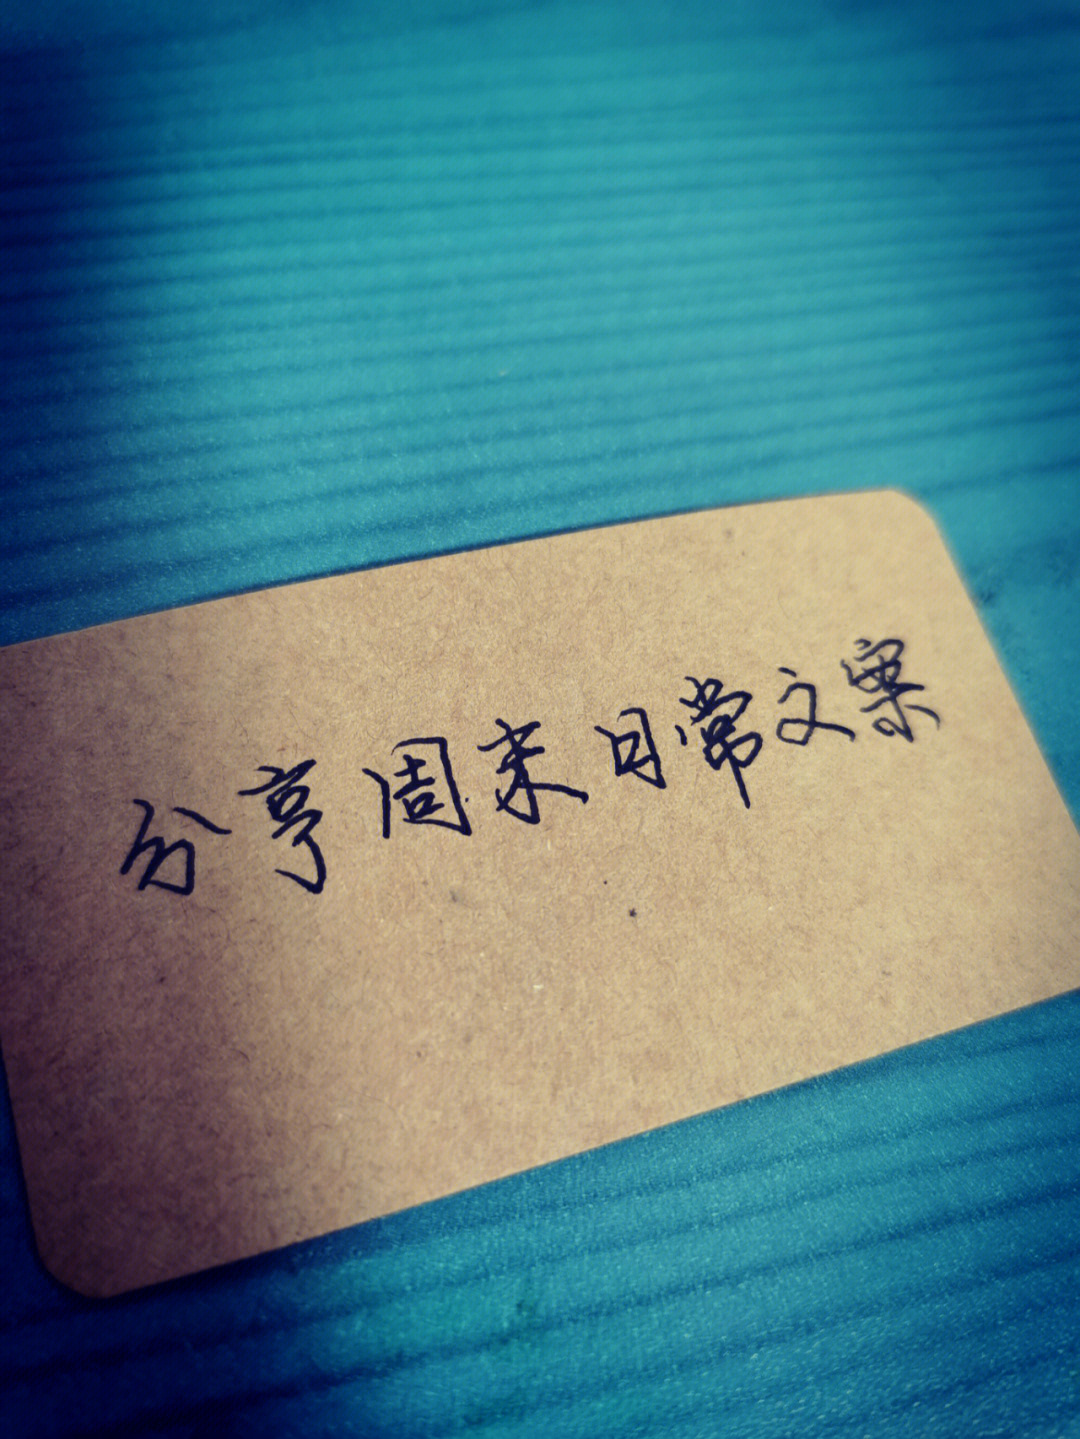 分享周末日常文案